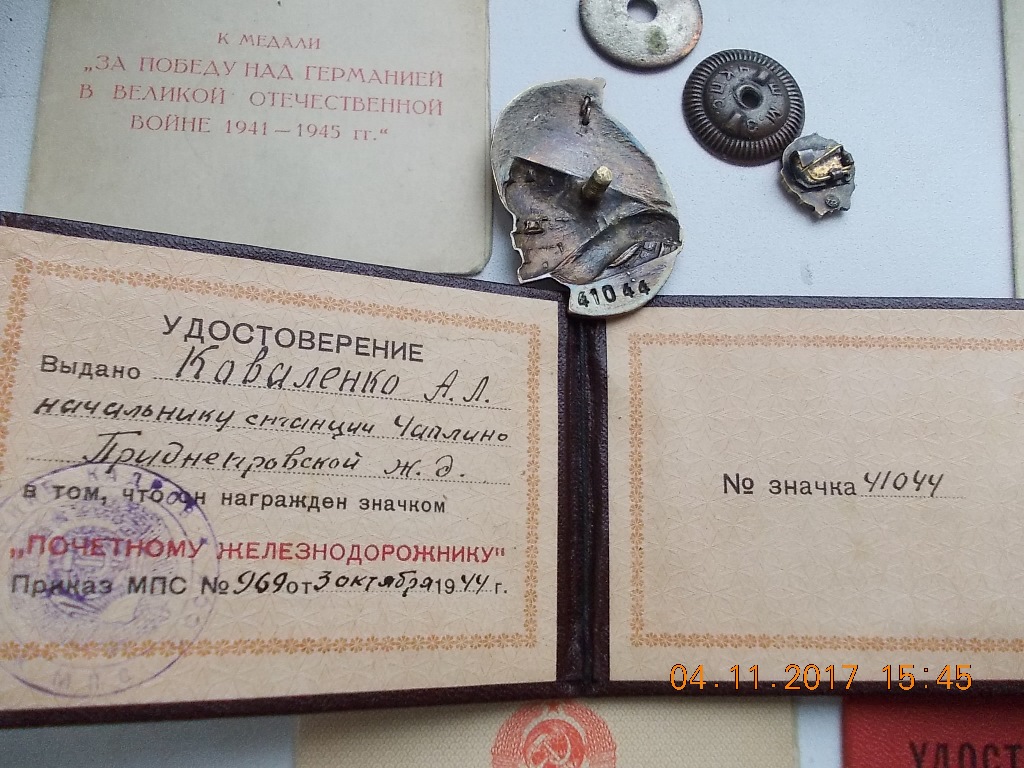 К МЕДАЛИ
„ЗА ПОБЕДУ НАД ГЕРМАНИЕЙ
В ВЕЛИКОЙ ОТЕЧЕСТВЕННОЙ
ВОЙНЕ 1941—1945 гг.“
41044
УДОСТОВЕРЕНИЕ
Выдано Коваленко А.Л.
начальнику станции Чаплино
Приднепровской ж.д.
в том, что он награжден значком
„ПОЧЕТНОМУ ЖЕЛЕЗНОДОРОЖНИКУ“
Приказ МПС № 969 от 3 октября 1944 г.
№ значка 41044
04.11.2017 15:45
УДОСТ